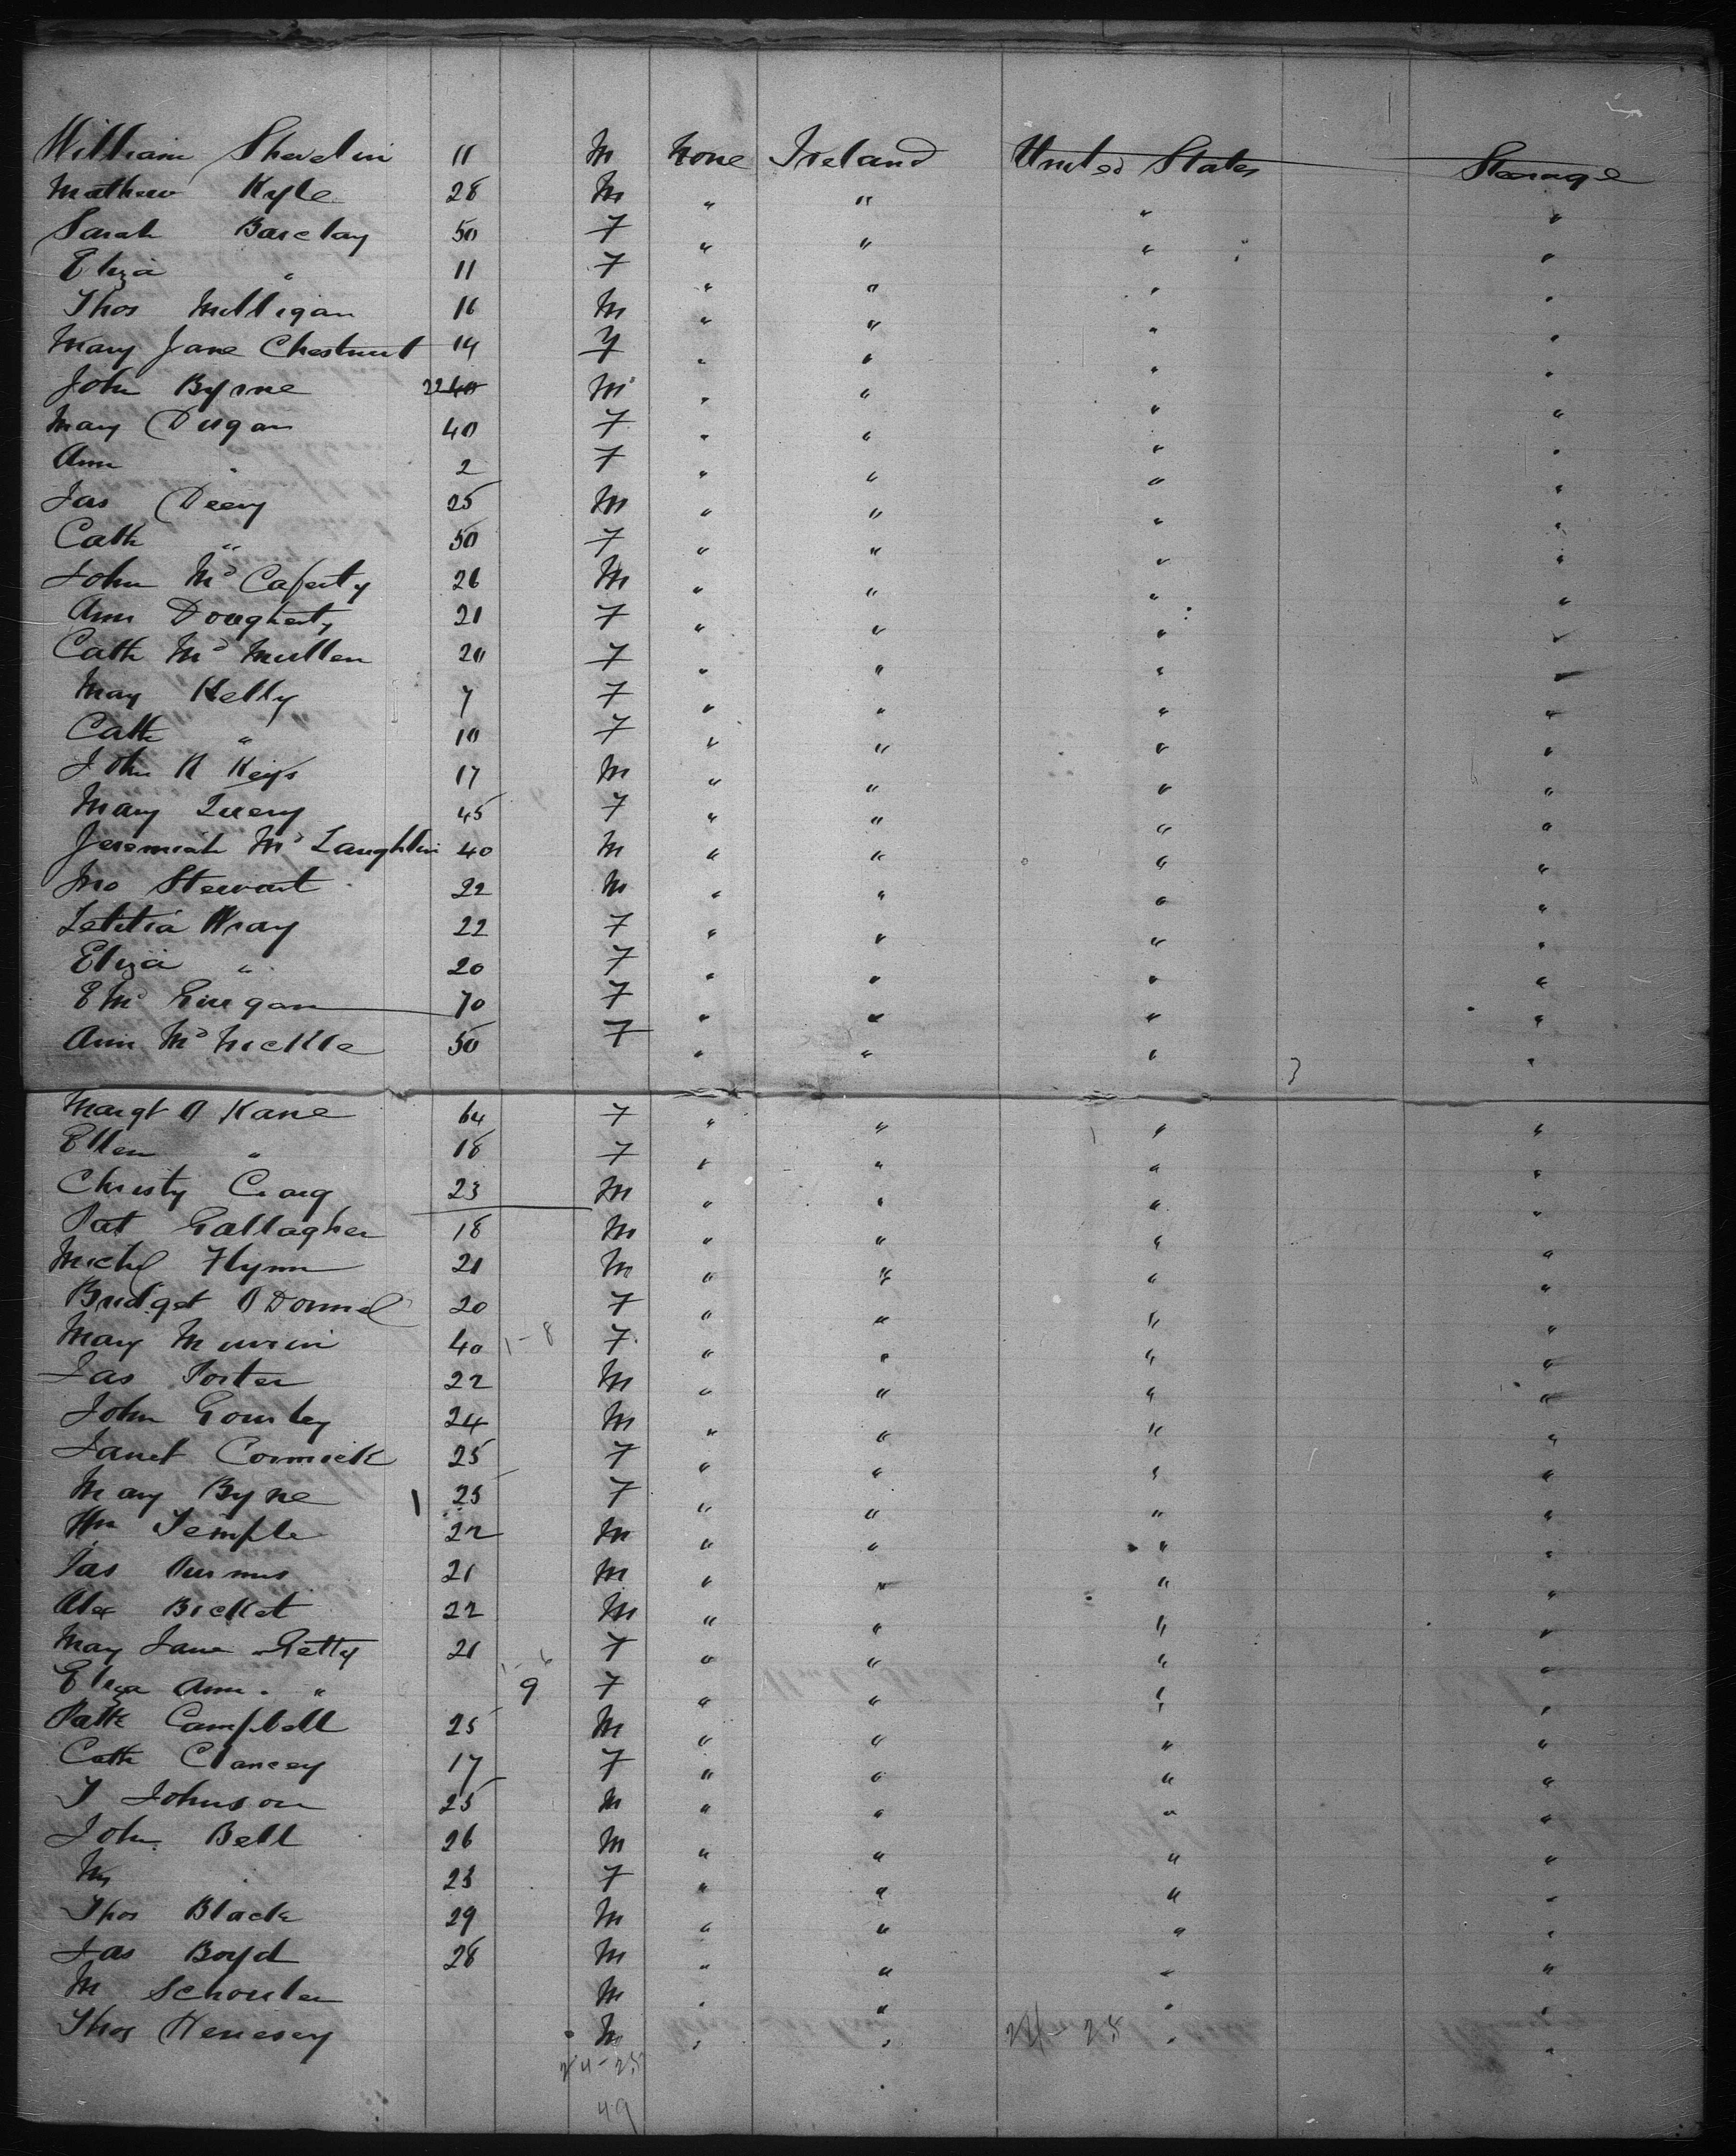 William Shevelin 11 M None Ireland United States Steerage
Mathew Kyle 28 M " " " "
Sarah Barclay 50 F " " " "
Eliza " 11 F " " " "
Thos Milligan 16 M " " " "
Mary Jane Chestnut 14 F " " " "
John Byrne 22 40 M " " " "
Mary Dugan 40 F " " " "
Ann " 2 F " " " "
Jas Deery 25 M " " " "
Cath " 50 F " " " "
John Mc Caferty 26 M " " " "
Ann Dougherty 21 F " " " "
Cath Mc Mullen 20 F " " " "
Mary Kelly 7 F " " " "
Cath " 10 F " " " "
John K Keys 17 M " " " "
Mary Query 45 F " " " "
Jeremiah Mc Laughlin 40 M " " " "
Jno Stewart 22 M " " " "
Letitia Wray 22 F " " " "
Eliza " 20 F " " " "
E Mc Gurgan 70 F " " " "
Ann Mc Nickle 50 F " " " "
Margt O Kane 64 F " " " "
Ellen " 18 F " " " "
Christy Craig 23 M " " " "
Pat Gallagher 18 M " " " "
Michl Flynn 21 M " " " "
Bridget O Donnel 20 F " " " "
Mary 40 1-8 F " " " "
Jas Porter 22 M " " " "
John Gourley 24 M " " " "
Janet Cormick 25 F " " " "
Mary Byrne 25 F " " " "
Wm Temple 22 M " " " "
Jas 21 M " " " "
Alex Bicket 22 M " " " "
Mary Jane Getty 21 F " " " "
Eliza Ann " 9 F " " " "
Patk Campbell 25 M " " " "
Cath Clancey 17 F " " " "
T Johnson 25 M " " " "
John Bell 26 M " " " "
Mrs " 23 F " " " "
Thos Black 29 M " " " "
Jas Boyd 28 M " " " "
M Schouler M " " " "
Thos Henesey M " " 24-25 " "
24-25
49